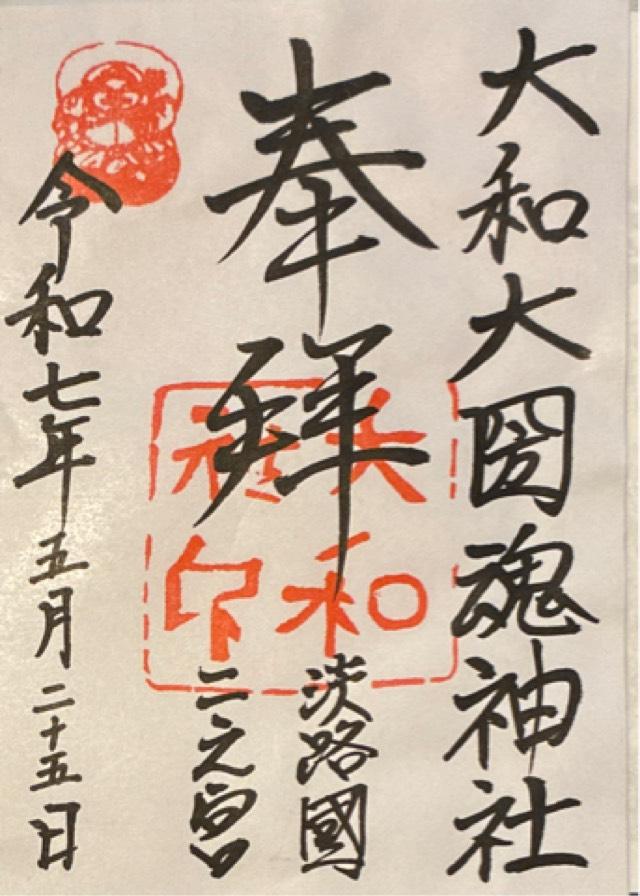 大和大圀魂神社
奉拜
大和社印
淡路國
二之宮
令和七年五月二十五日